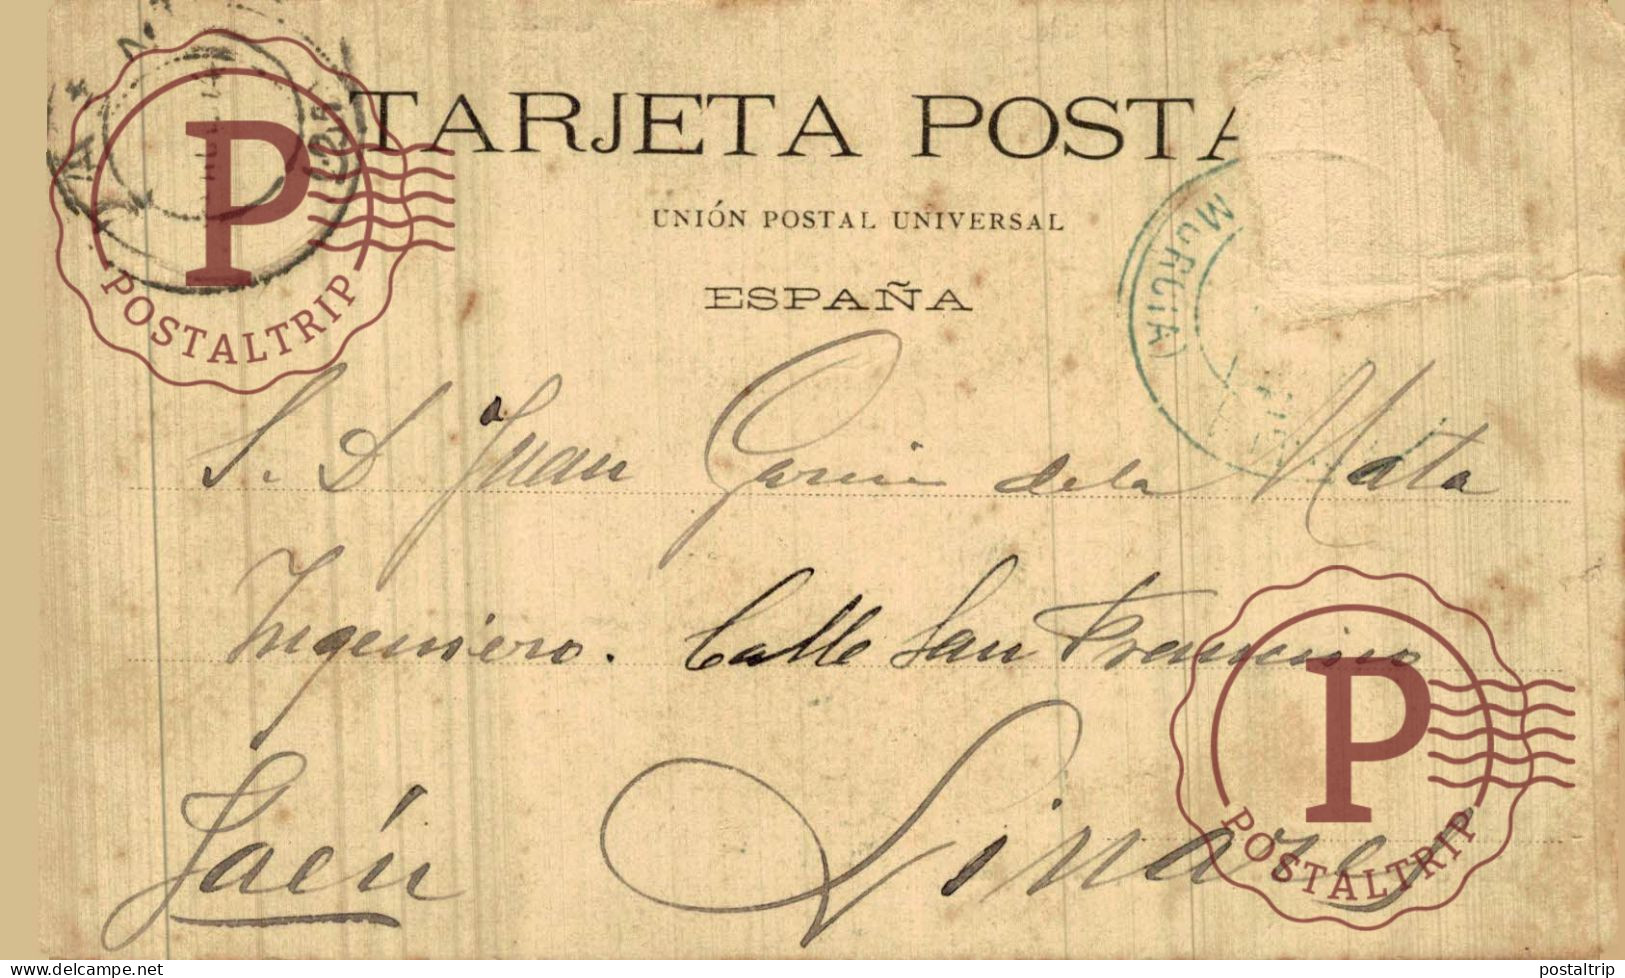 TARJETA POSTA
UNIÓN POSTAL UNIVERSAL
ESPAÑA
MURCIA)
P
POSTALTRIP
S. D. Juan Garcia de la Mata
Ingeniero. Calle San Francisco
Jaén Linares
P
POSTALTRIP
www.delcampe.net
postaltrip